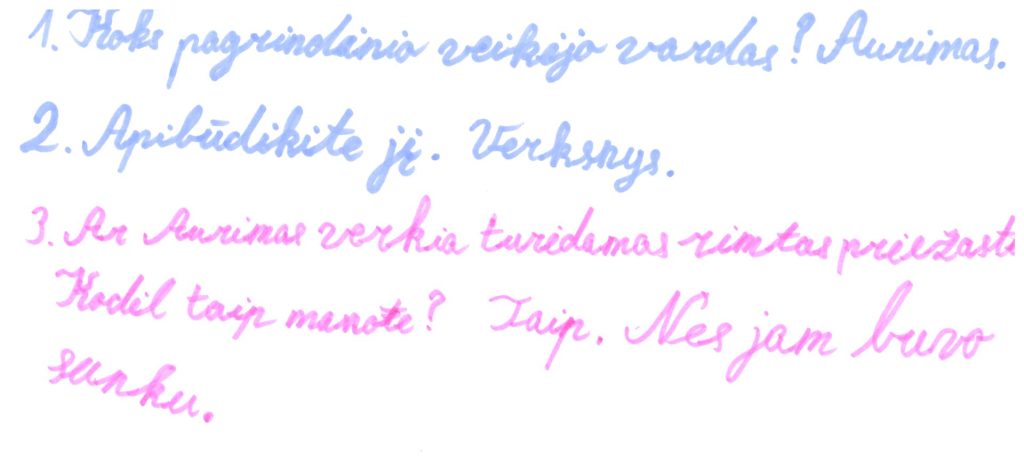 1. Koks pagrindinio veikėjo vardas? Aurimas.
2. Apibūdikite jį. Verksnys.
3. Ar Aurimas verkia turėdamas rimtas priežasti
Kodėl taip manote? Taip. Nes jam buvo
sunku.